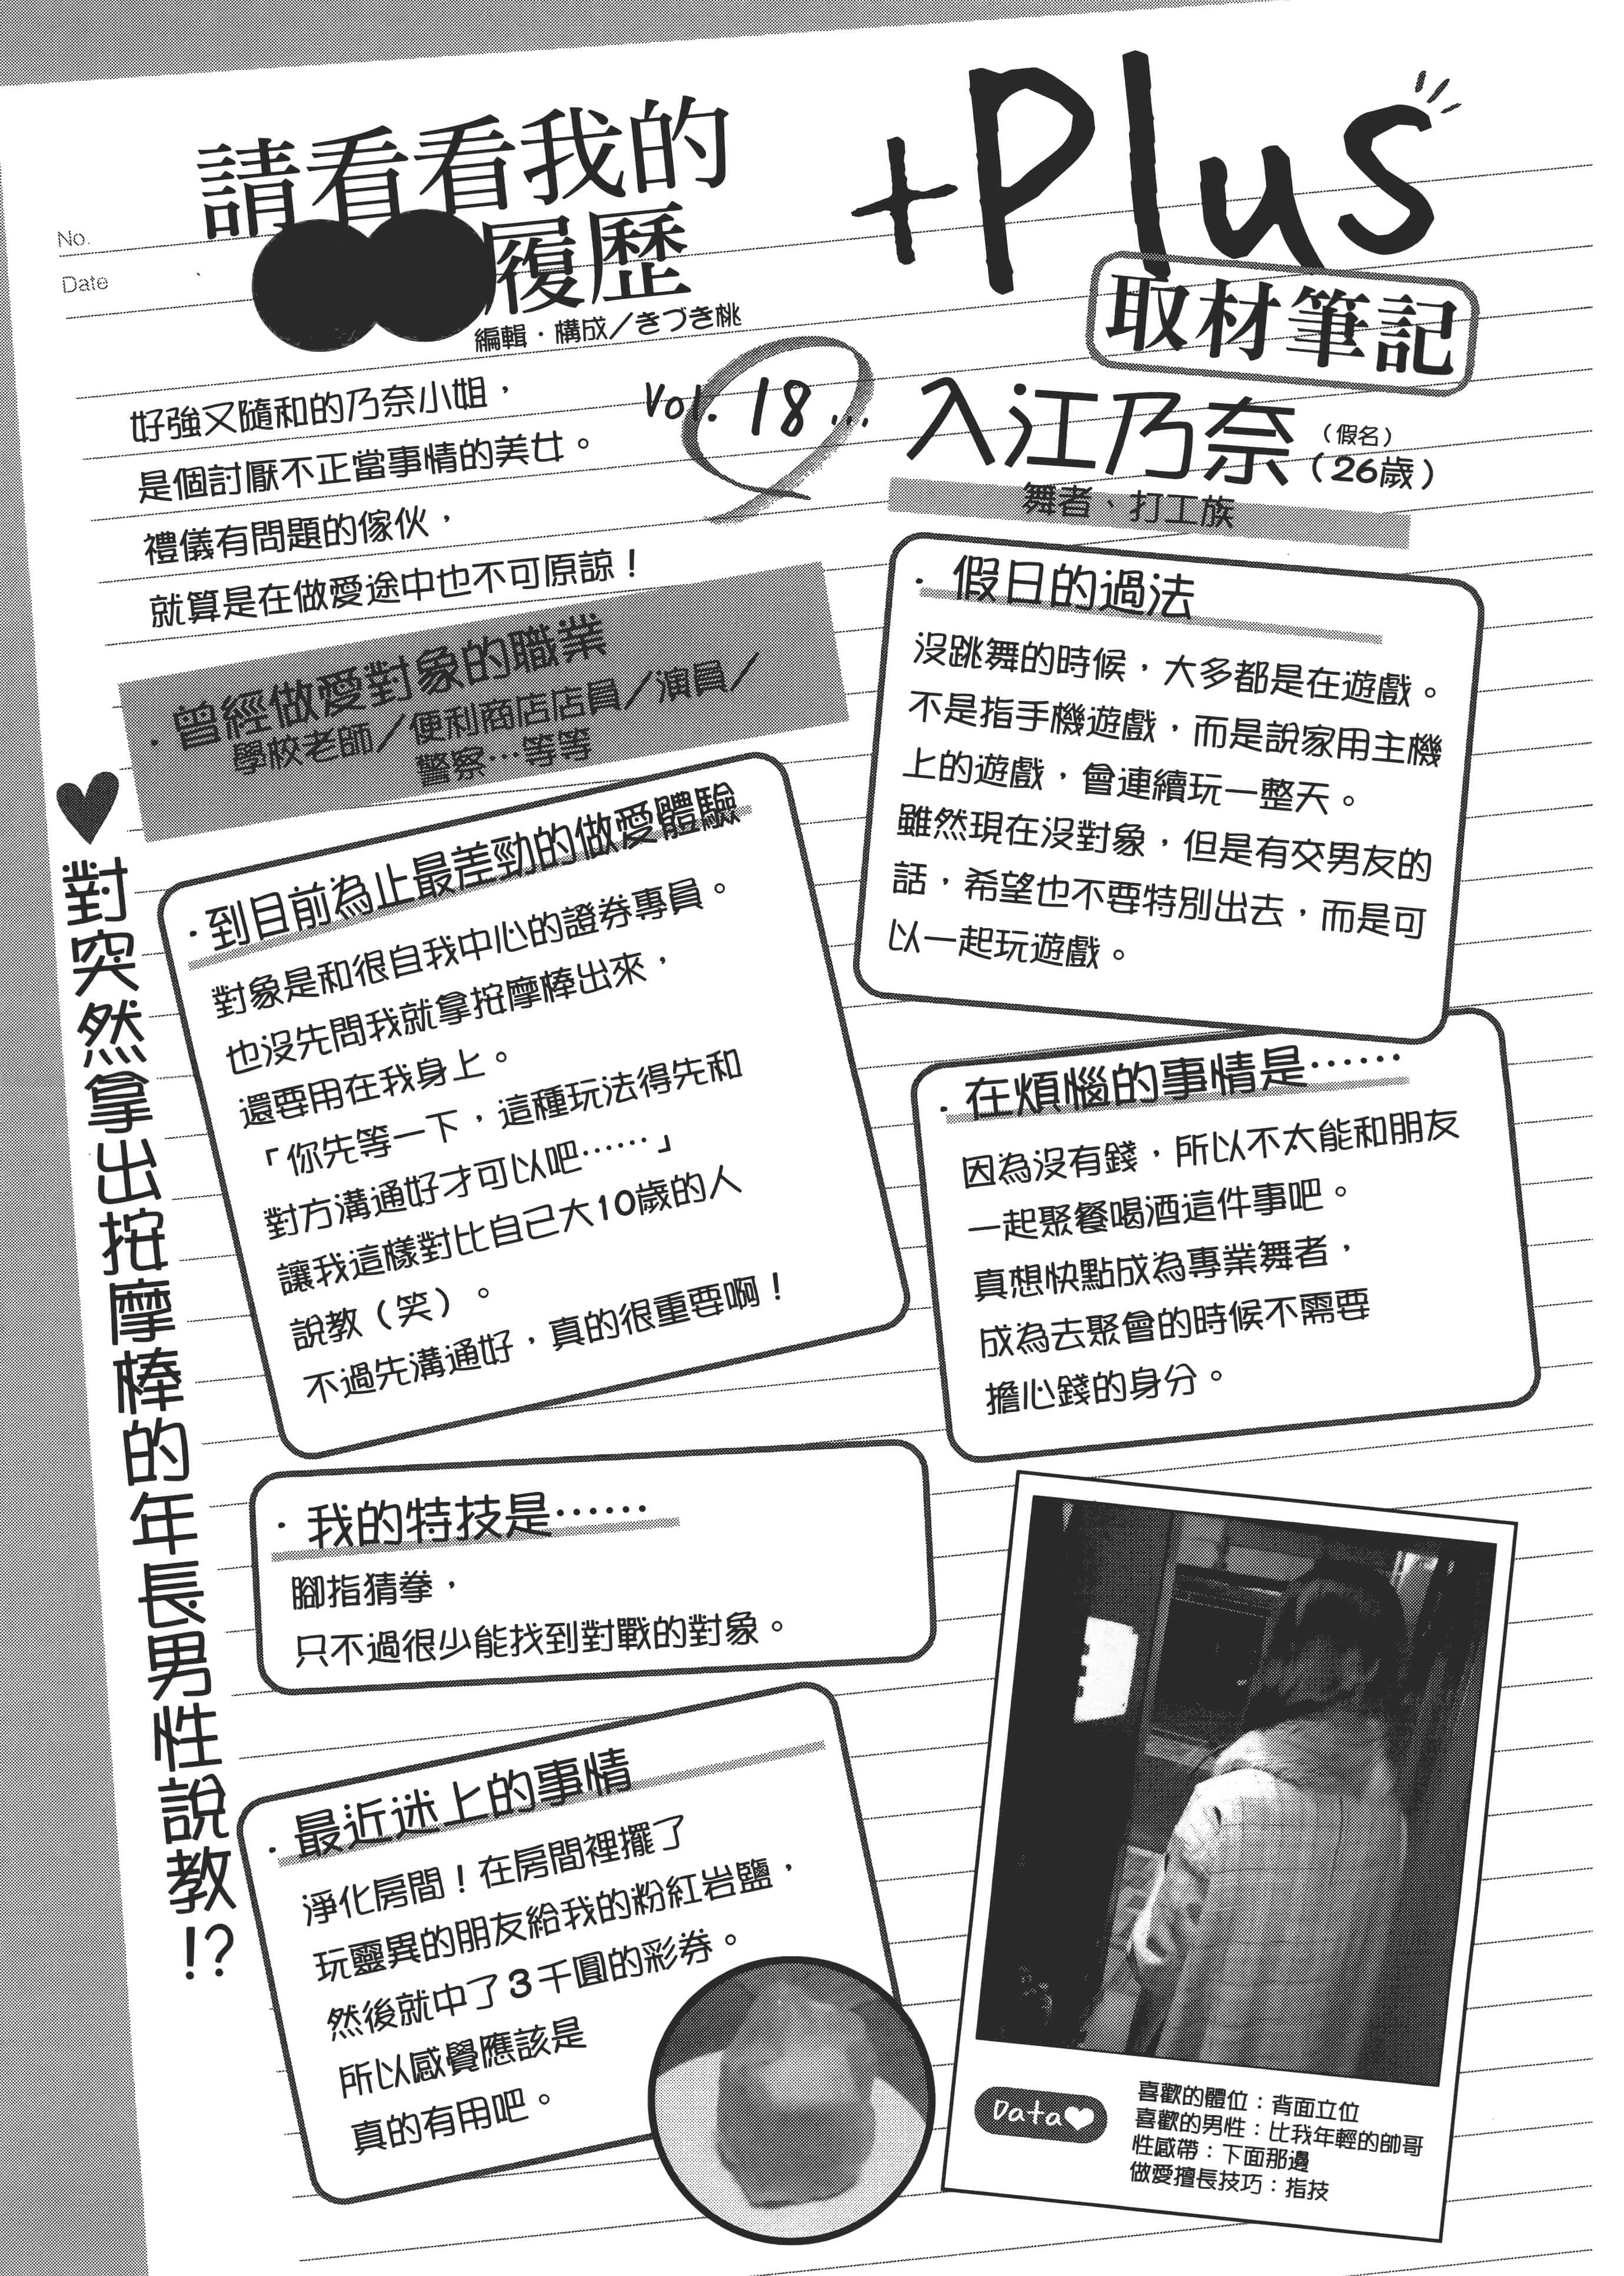 請看看我的
履歷
編輯・構成／きづき桃
+Plus
取材筆記
No.
Date
Vol. 18...
入江乃奈
（假名）
（26歲）
舞者、打工族
好強又隨和的乃奈小姐，
是個討厭不正當事情的美女。
禮儀有問題的傢伙，
就算是在做愛途中也不可原諒！
・曾經做愛對象的職業
學校老師／便利商店店員／演員／
警察…等等
♥對突然拿出按摩棒的年長男性說教!?
・到目前為止最差勁的做愛體驗
對象是和很自我中心的證券專員。
也沒先問我就拿按摩棒出來，
還要用在我身上。
「你先等一下，這種玩法得先和
對方溝通好才可以吧……」
讓我這樣對比自己大10歲的人
說教（笑）。
不過先溝通好，真的很重要啊！
・假日的過法
沒跳舞的時候，大多都是在遊戲。
不是指手機遊戲，而是說家用主機
上的遊戲，會連續玩一整天。
雖然現在沒對象，但是有交男友的
話，希望也不要特別出去，而是可
以一起玩遊戲。
・在煩惱的事情是……
因為沒有錢，所以不太能和朋友
一起聚餐喝酒這件事吧。
真想快點成為專業舞者，
成為去聚會的時候不需要
擔心錢的身分。
・我的特技是……
腳指猜拳，
只不過很少能找到對戰的對象。
・最近迷上的事情
淨化房間！在房間裡擺了
玩靈異的朋友給我的粉紅岩鹽，
然後就中了3千圓的彩券。
所以感覺應該是
真的有用吧。
Data♥
喜歡的體位：背面立位
喜歡的男性：比我年輕的帥哥
性感帶：下面那邊
做愛擅長技巧：指技